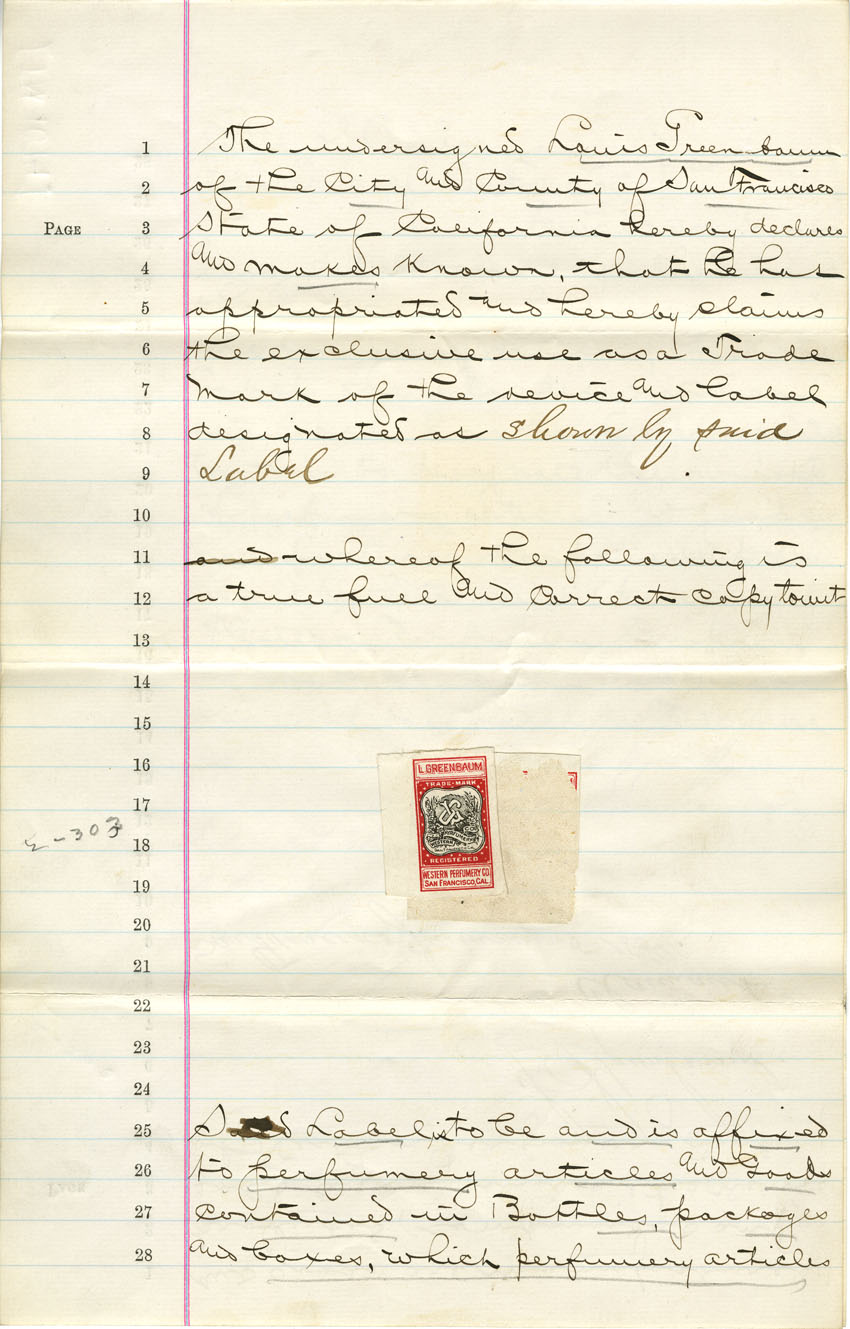 1 The undersigned Louis Greenbaum
2 of the City and County of San Francisco
PAGE 3 State of California hereby declares
4 and makes known, that he has
5 appropriated and hereby claims
6 the exclusive use as a Trade
7 Mark of the device and label
8 designated as shown by said
9 Label
10
11 and whereof the following is
12 a true full and correct copy towit
13
14
15
16
L GREENBAUM
17
TRADE-MARK
Σ-303
18
REGISTERED
19
WESTERN PERFUMERY CO
SAN FRANCISCO, CAL.
20
21
22
23
24
25 Said Label is to be and is affixed
26 to perfumery articles and Goods
27 contained in Bottles, packages
28 and boxes, which perfumery articles